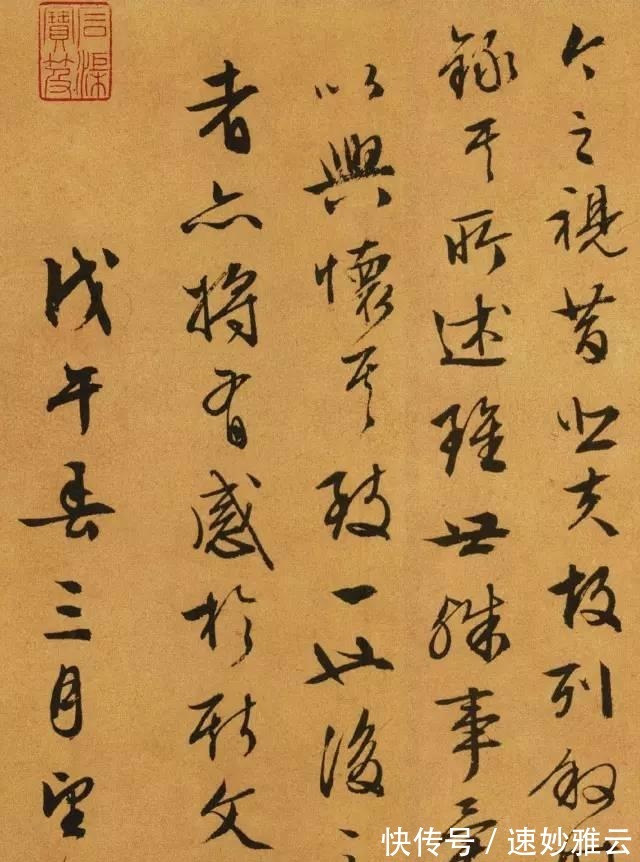 今之視昔悲夫故列叙
錄其所述雖世殊事異
以興懷其致一也後之
者亦將有感於斯文
戊午春三月望
石渠寶笈
快传号／速妙雅云